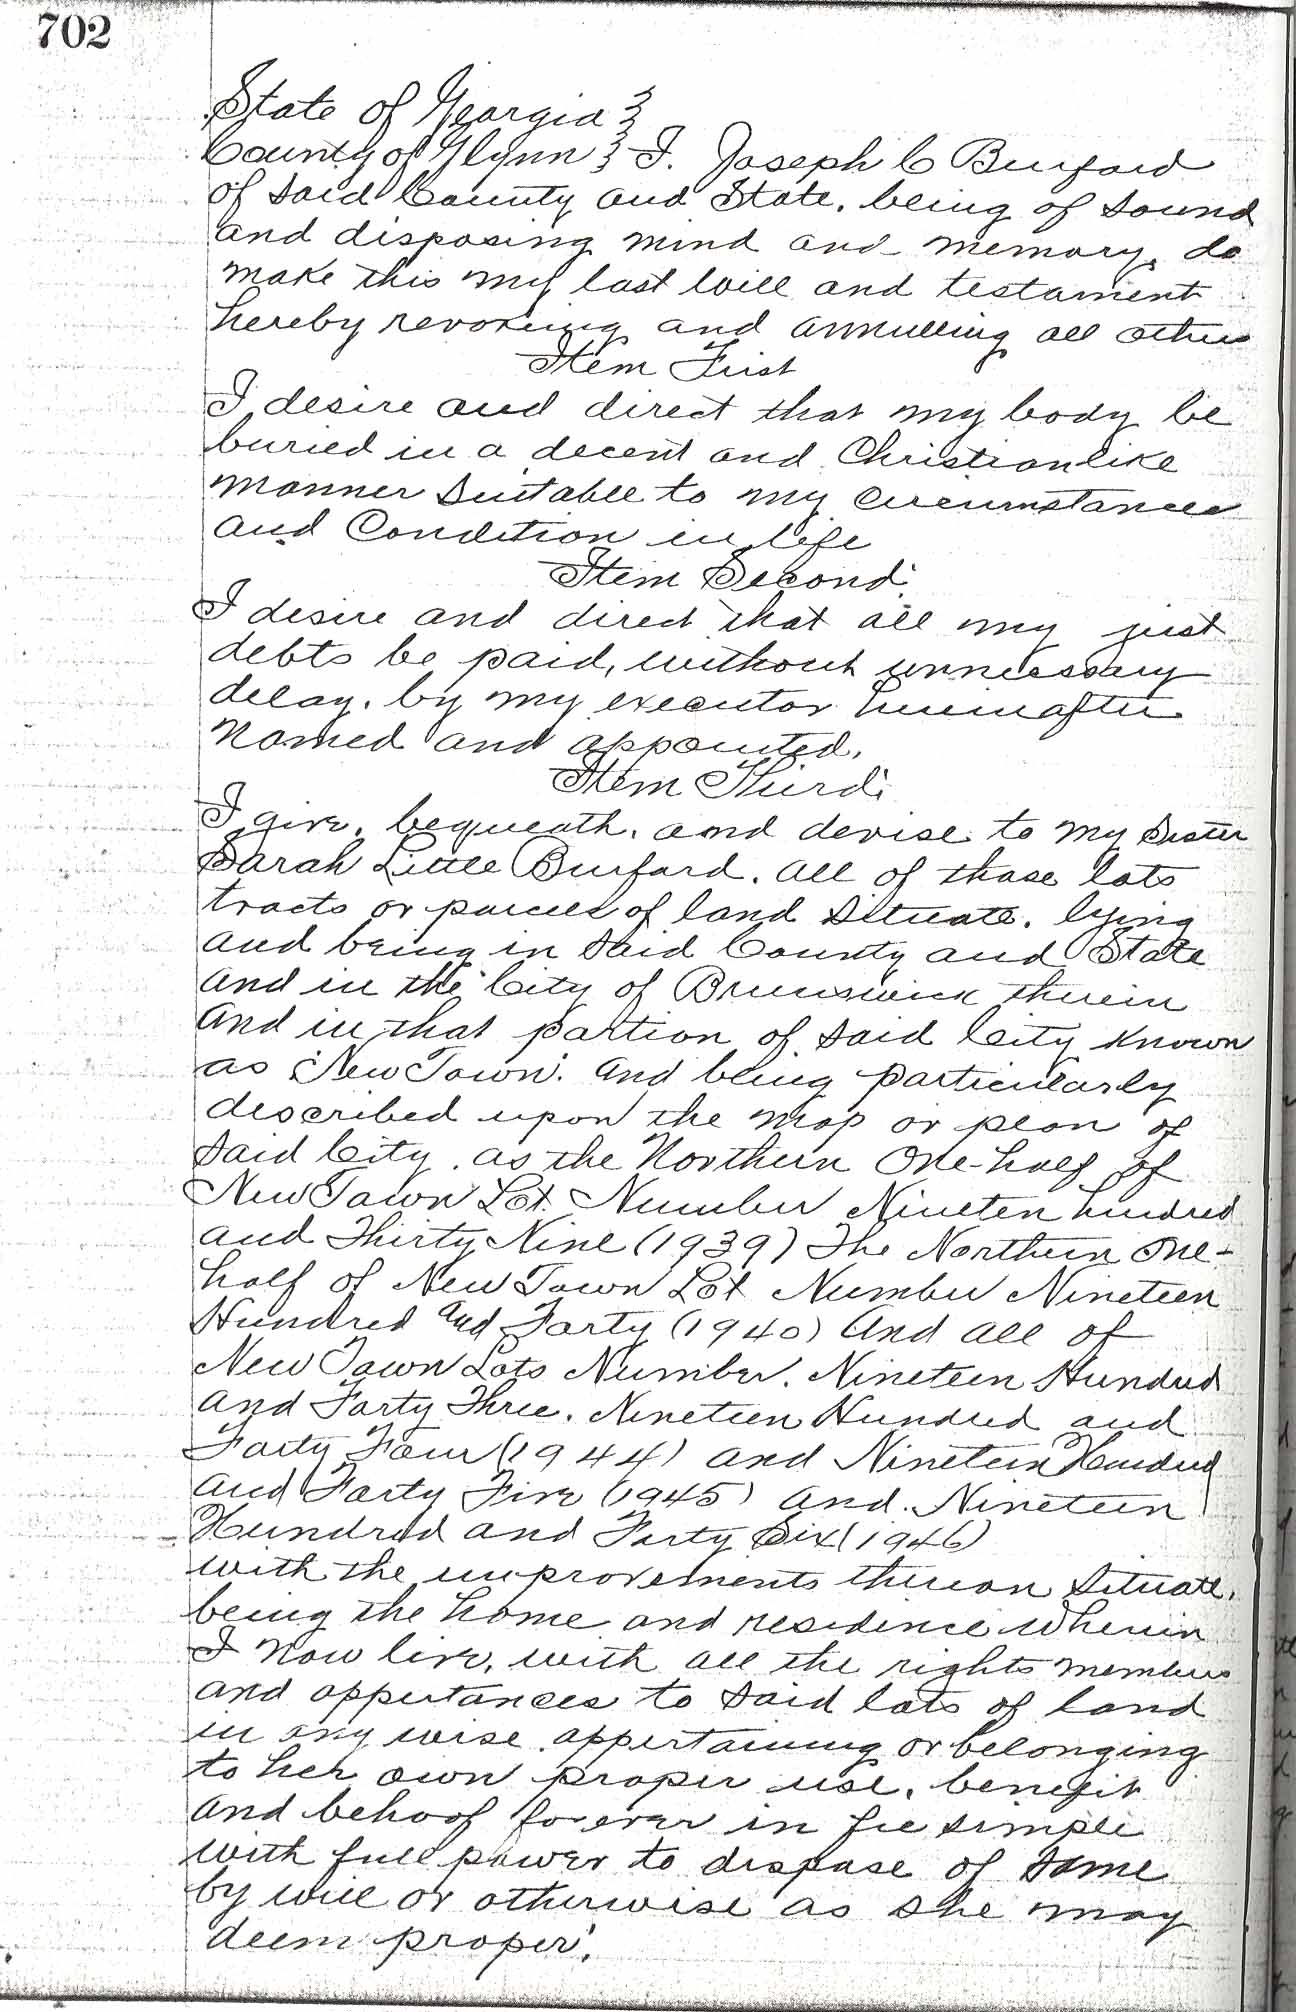 702
State of Georgia }
County of Glynn } I. Joseph C Burford
of said County and State. being of sound
and disposing mind and memory, do
make this my last will and testament
hereby revoking and annulling all others
Item First
I desire and direct that my body be
buried in a decent and Christianlike
manner suitable to my circumstances
and Condition in life
Item Second.
I desire and direct that all my just
debts be paid, without unnecessary
delay. by my executor hereinafter
named and appointed.
Item Third.
I give, bequeath, and devise to my sister
Sarah Little Burford. all of those lots
tracts or parcels of land situate. lying
and being in said County and State
and in the City of Brunswick therein
and in that portion of said City known
as "New Town". and being particularly
described upon the map or plan of
said City. as the Northern One-half of
New Town Lot Number Nineten hundred
and Thirty Nine (1939) The Northern One-
half of New Town Lot Number Nineteen
Hundred and Forty (1940) And all of
New Town Lots Number. Nineteen Hundred
and Forty Three. Nineteen Hundred and
Forty Four (1944) and Nineteen Hundred
and Forty Five (1945) and. Nineteen
Hundred and Forty Six (1946)
with the improvements thereon situate.
being the home and residence wherein
I now live, with all the rights members
and appertances to said lots of land
in any wise. appertaining or belonging
to her own proper use, benefit
and behoof forever in fee simple
with full power to dispose of same
by will or otherwise as she may
deem proper.